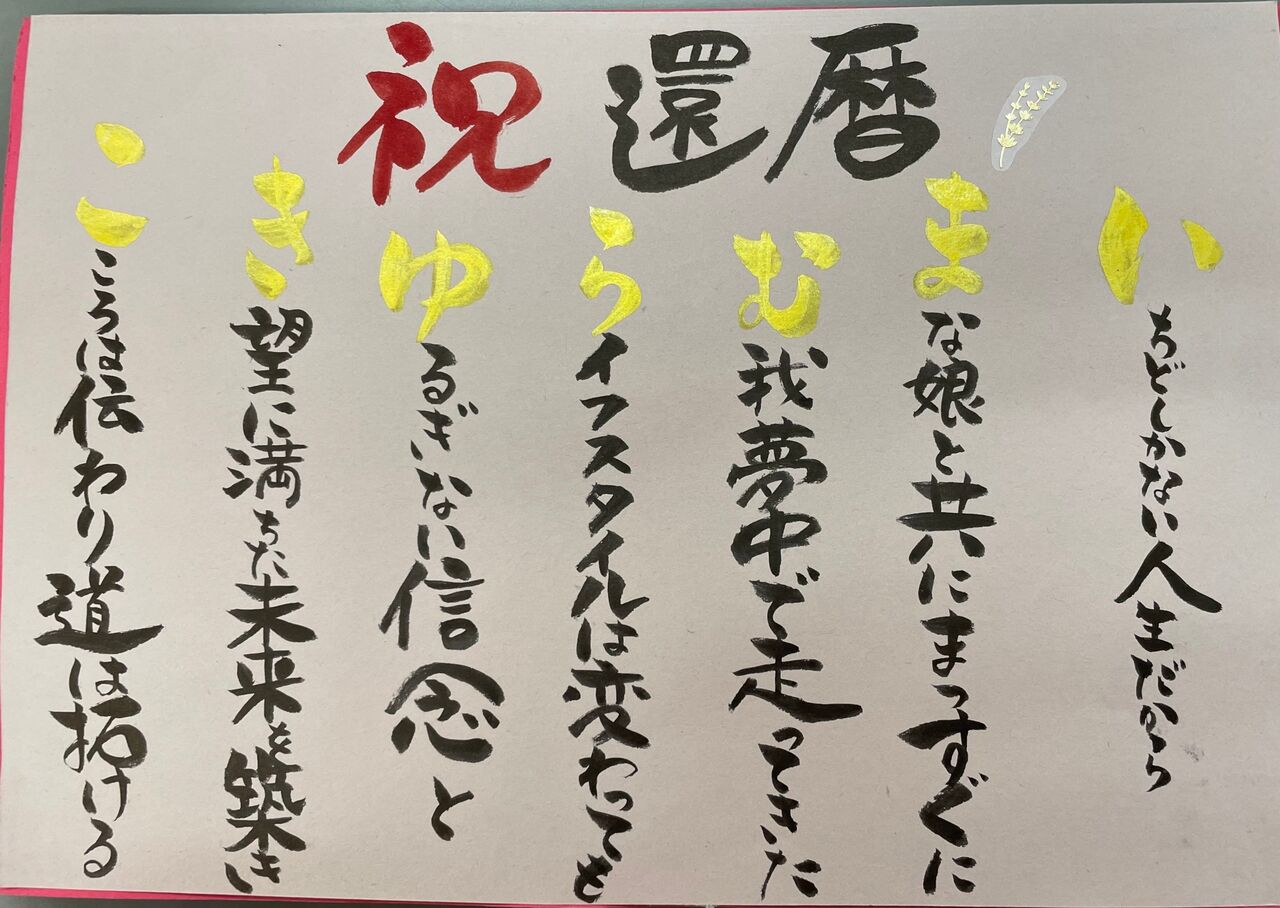 祝還暦
いちどしかない人生だから
まな娘と共にまっすぐに
む我夢中で走ってきた
らイフスタイルは変わっても
ゆるぎない信念と
き望に満ちた未来を築き
こころは伝わり道は拓ける